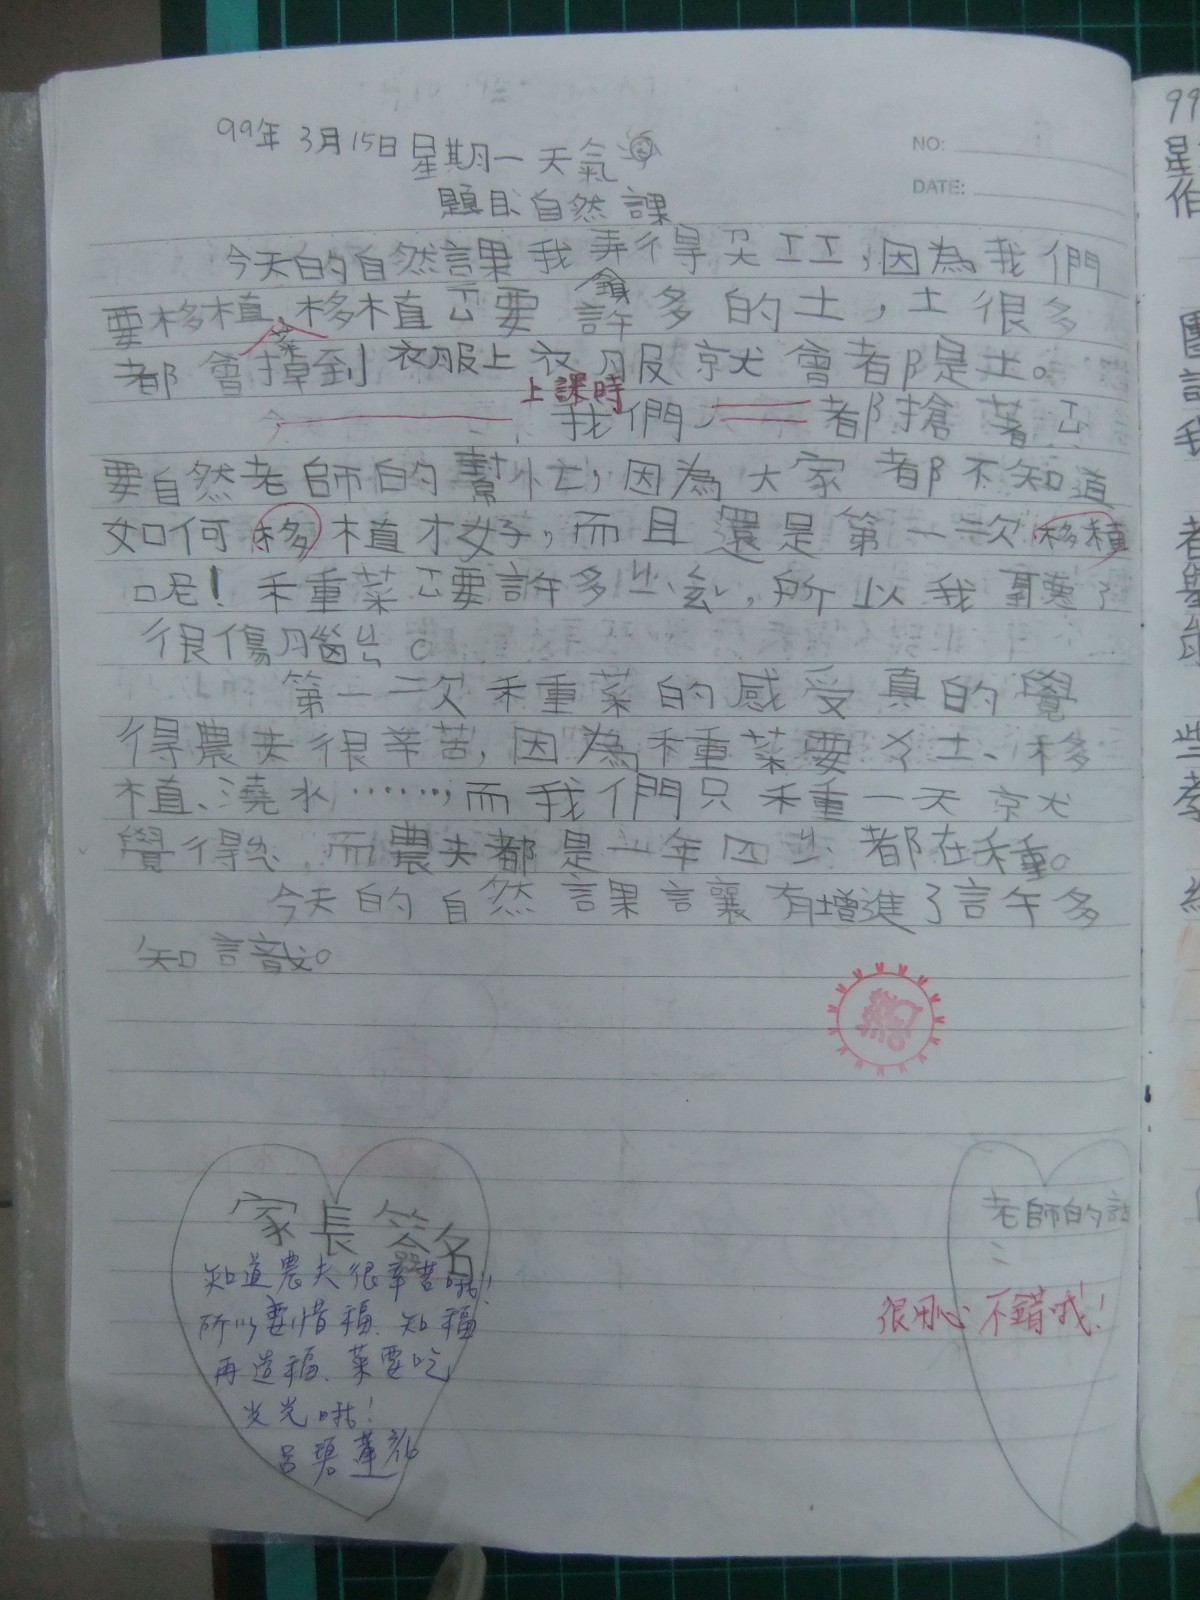 99年3月15日星期一天氣
NO:
DATE:
題目:自然課
今天的自然課我弄得ㄡㄈㄈ,因為我們
要移植,移植ㄒ要許多的土,土很多
都會掉到衣服上衣服就會都是土。
菜
上課時
我們都搶著ㄒ
要自然老師的幫忙,因為大家都不知道
如何移植才好,而且還是第一次移植
呢!種菜ㄒ要許多ㄓ,所以我
很傷腦ㄐ。
第一次種菜的感受真的覺
得農夫很辛苦,因為種菜要ㄨ土、移
植、澆水……,而我們只種一天就
覺得,而農夫都是一年四ㄐ都在種。
今天的自然課讓有增進了許多
知識。
家長簽名
知道農夫很辛苦哦!
所以要惜福、知福
再造福、菜要吃
光光哦!
呂碧蓮
老師的話
:
很用心 不錯哦!
99
星